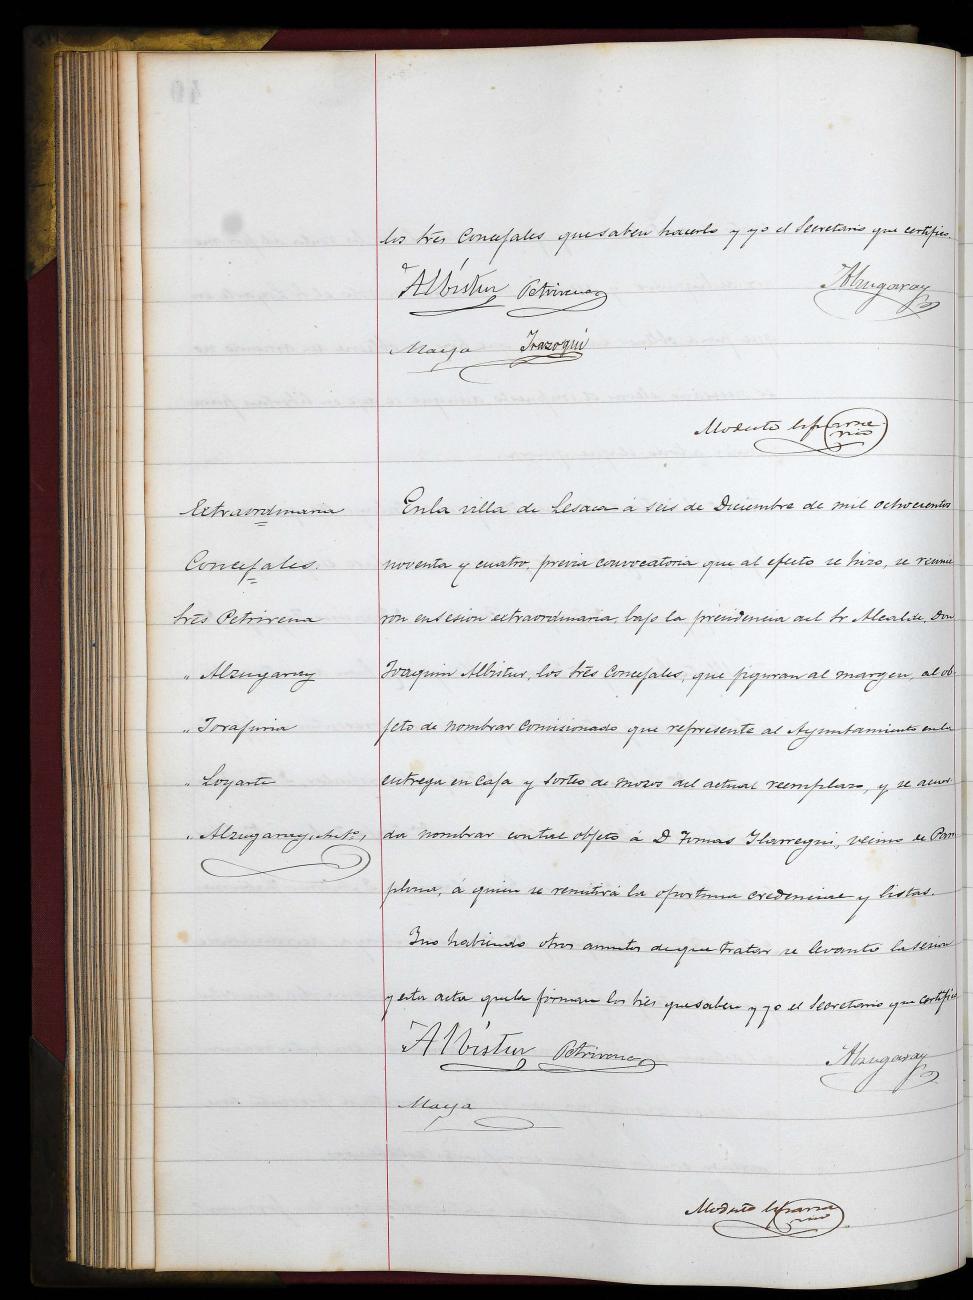 los trēs Concejales que saben hacerlo y yo el Secretario que certifico.
Albistur Petrirena Alzugaray
Maya Irazoqui
Modesto Esparza
Extraordinaria
Concejales.
trēs Petrirena
" Alzugaray
" Torajuria
" Loyarte
" Alzugaray, Anto,
En la villa de Lesaca á seis de Diciembre de mil ochocientos
noventa y cuatro, previa convocatoria que al efecto se hizo, se reunie
ron en sesion extraordinaria, bajo la presidencia del Sr Alcalde, Don
Joaquin Albistur, los trēs Concejales, que figuran al margen, al ob-
jeto de nombrar Comisionado que represente al Ayuntamiento en la
entrega en Caja y Sorteo de mozos del actual reemplazo, y se acuer
da nombrar con tal objeto á D. Tomas Ilarregui, vecino de Pam
plona, á quien se remitirá la oportuna credencial y listas.
Y no habiendo otros asuntos de que tratar se levantó la sesion
y esta acta que la firman los trēs que saben y yo el Secretario que certifico
Albistur Petrirena Alzugaray
Maya
Modesto Esparza